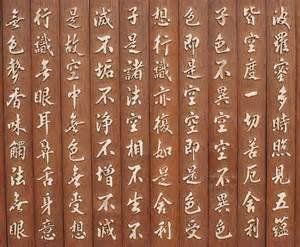 波羅蜜多時照見五蘊
皆空度一切苦厄舍利
子色不異空空不異色
色即是空空即是色受
想行識亦復如是舍利
子是諸法空相不生不
滅不垢不淨不增不減
是故空中無色無受想
行識無眼耳鼻舌身意
無色聲香味觸法無眼